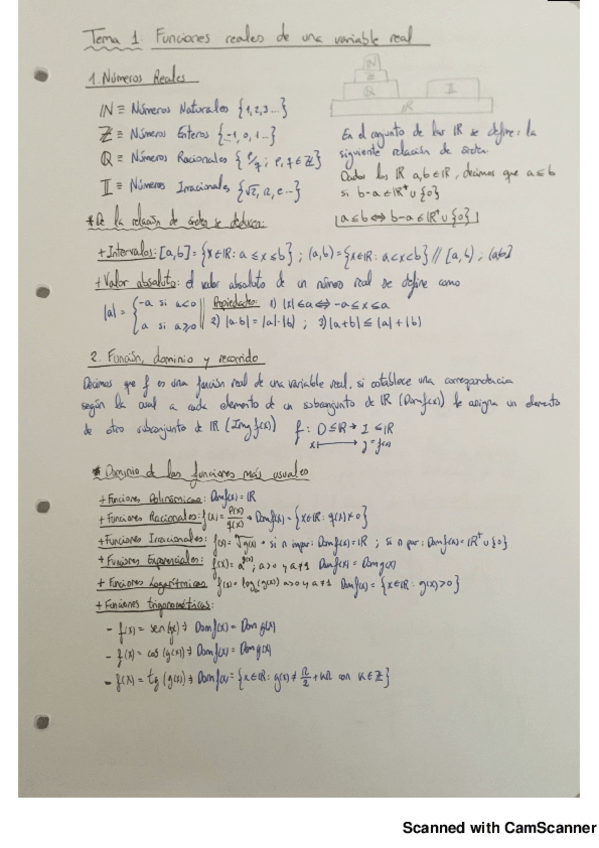 Tema 1: Funciones reales de una variable real
1. Números Reales
N
Z
Q
I
R
ℕ ≡ Números Naturales {1,2,3...}
ℤ ≡ Números Enteros {-1, 0, 1...}
ℚ ≡ Números Racionales {P/q ; P, q ∈ ℤ}
𝕀 ≡ Números Irracionales {√2, π, e...}
En el conjunto de los ℝ se define: la
siguiente relación de orden
Dados los ℝ a,b ∈ ℝ, decimos que a ≤ b
si b-a ∈ ℝ⁺ ∪ {0}
a ≤ b ⇔ b-a ∈ ℝ⁺ ∪ {0}
* De la relación de orden se deducen:
+ Intervalos: [a,b] = {x ∈ ℝ: a ≤ x ≤ b} ; (a,b) = {x ∈ ℝ: a < x < b} // [a,b) ; (a,b]
+ Valor absoluto: el valor absoluto de un número real se define como
|a| = { -a si a<0
a si a≥0
Propiedades: 1) |x| ≤ a ⇔ -a ≤ x ≤ a
2) |a·b| = |a|·|b| ; 3) |a+b| ≤ |a| + |b|
2. Función, dominio y recorrido
Decimos que f es una función real de una variable real, si establece una correspondencia
según la cual a cada elemento de un subconjunto de ℝ (Dom f(x)) le asigna un elemento
de otro subconjunto de ℝ (Img f(x)) f: D ⊆ ℝ → I ⊆ ℝ
x ⟼ y = f(x)
* Dominio de las funciones más usuales
+ Funciones Polinómicas: Dom f(x) = ℝ
+ Funciones Racionales: f(x) = P(x)/q(x) → Dom f(x) = {x ∈ ℝ: q(x) ≠ 0}
+ Funciones Irracionales: f(x) = ⁿ√g(x) → si n impar: Dom f(x) = ℝ ; si n par: Dom f(x) = ℝ⁺ ∪ {0}
+ Funciones Exponenciales: f(x) = a^g(x) ; a>0 y a≠1 Dom f(x) = Dom g(x)
+ Funciones Logarítmicas f(x) = log_a(g(x)) a>0 y a≠1 Dom f(x) = {x ∈ ℝ: g(x) > 0}
+ Funciones trigonométricas:
- f(x) = sen(g(x)) → Dom f(x) = Dom g(x)
- f(x) = cos(g(x)) → Dom f(x) = Dom g(x)
- f(x) = tg(g(x)) → Dom f(x) = {x ∈ ℝ: g(x) ≠ π/2 + kπ con k ∈ ℤ}
Scanned with CamScanner